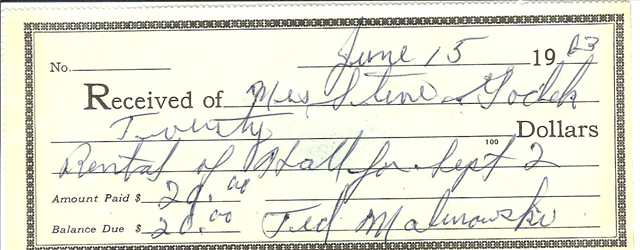 June 15 19 63
No.
Received of Mrs Steve Godek
Twenty
100 Dollars
Rental of Hall for Sept 2
Amount Paid $ 20.00
Balance Due $ 20.00 Ted Malinowski